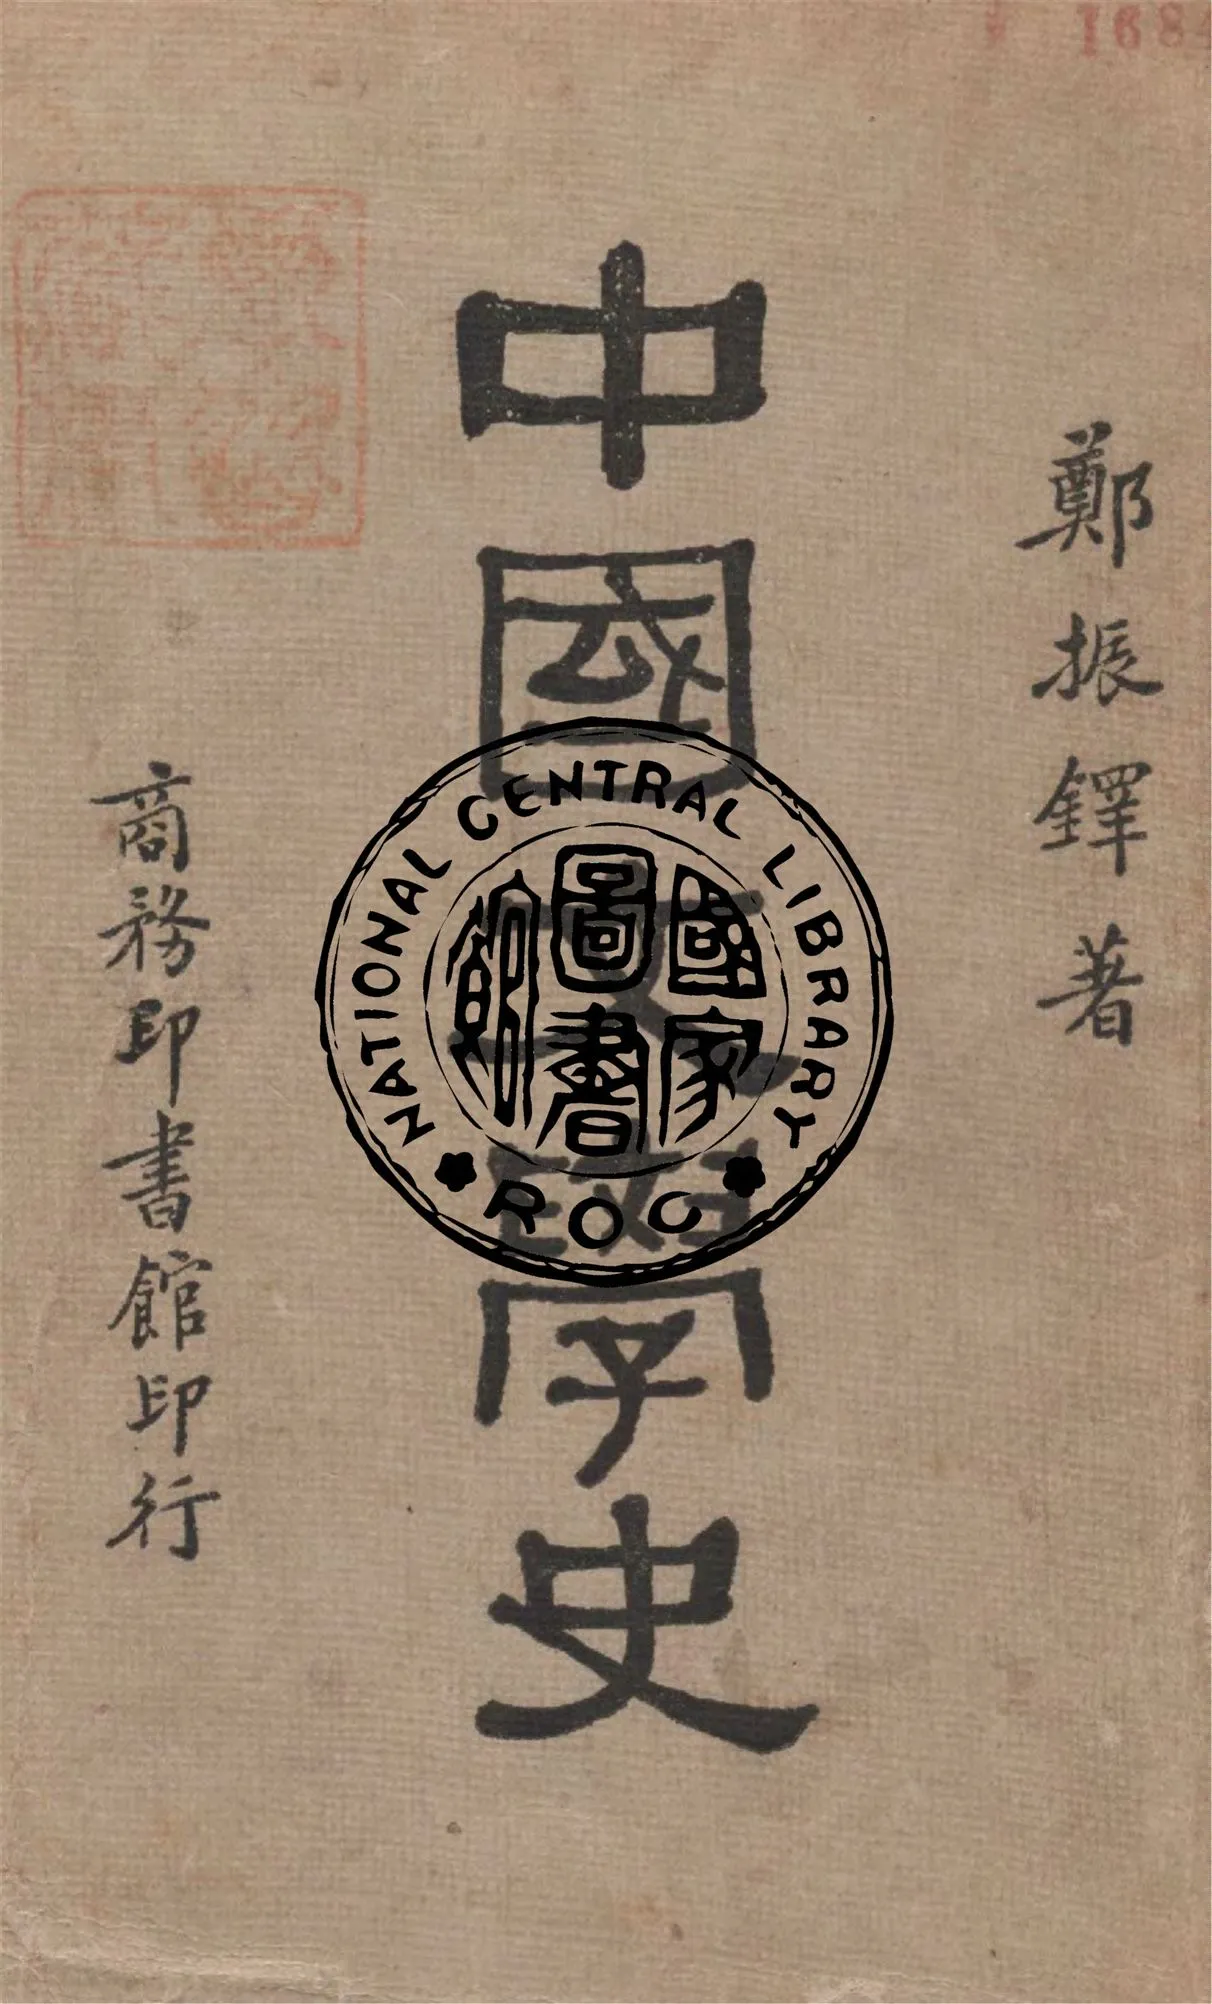 1684
鄭振鐸著
中國文學史
商務印書館印行
NATIONAL CENTRAL LIBRARY
國家圖書館
ROC